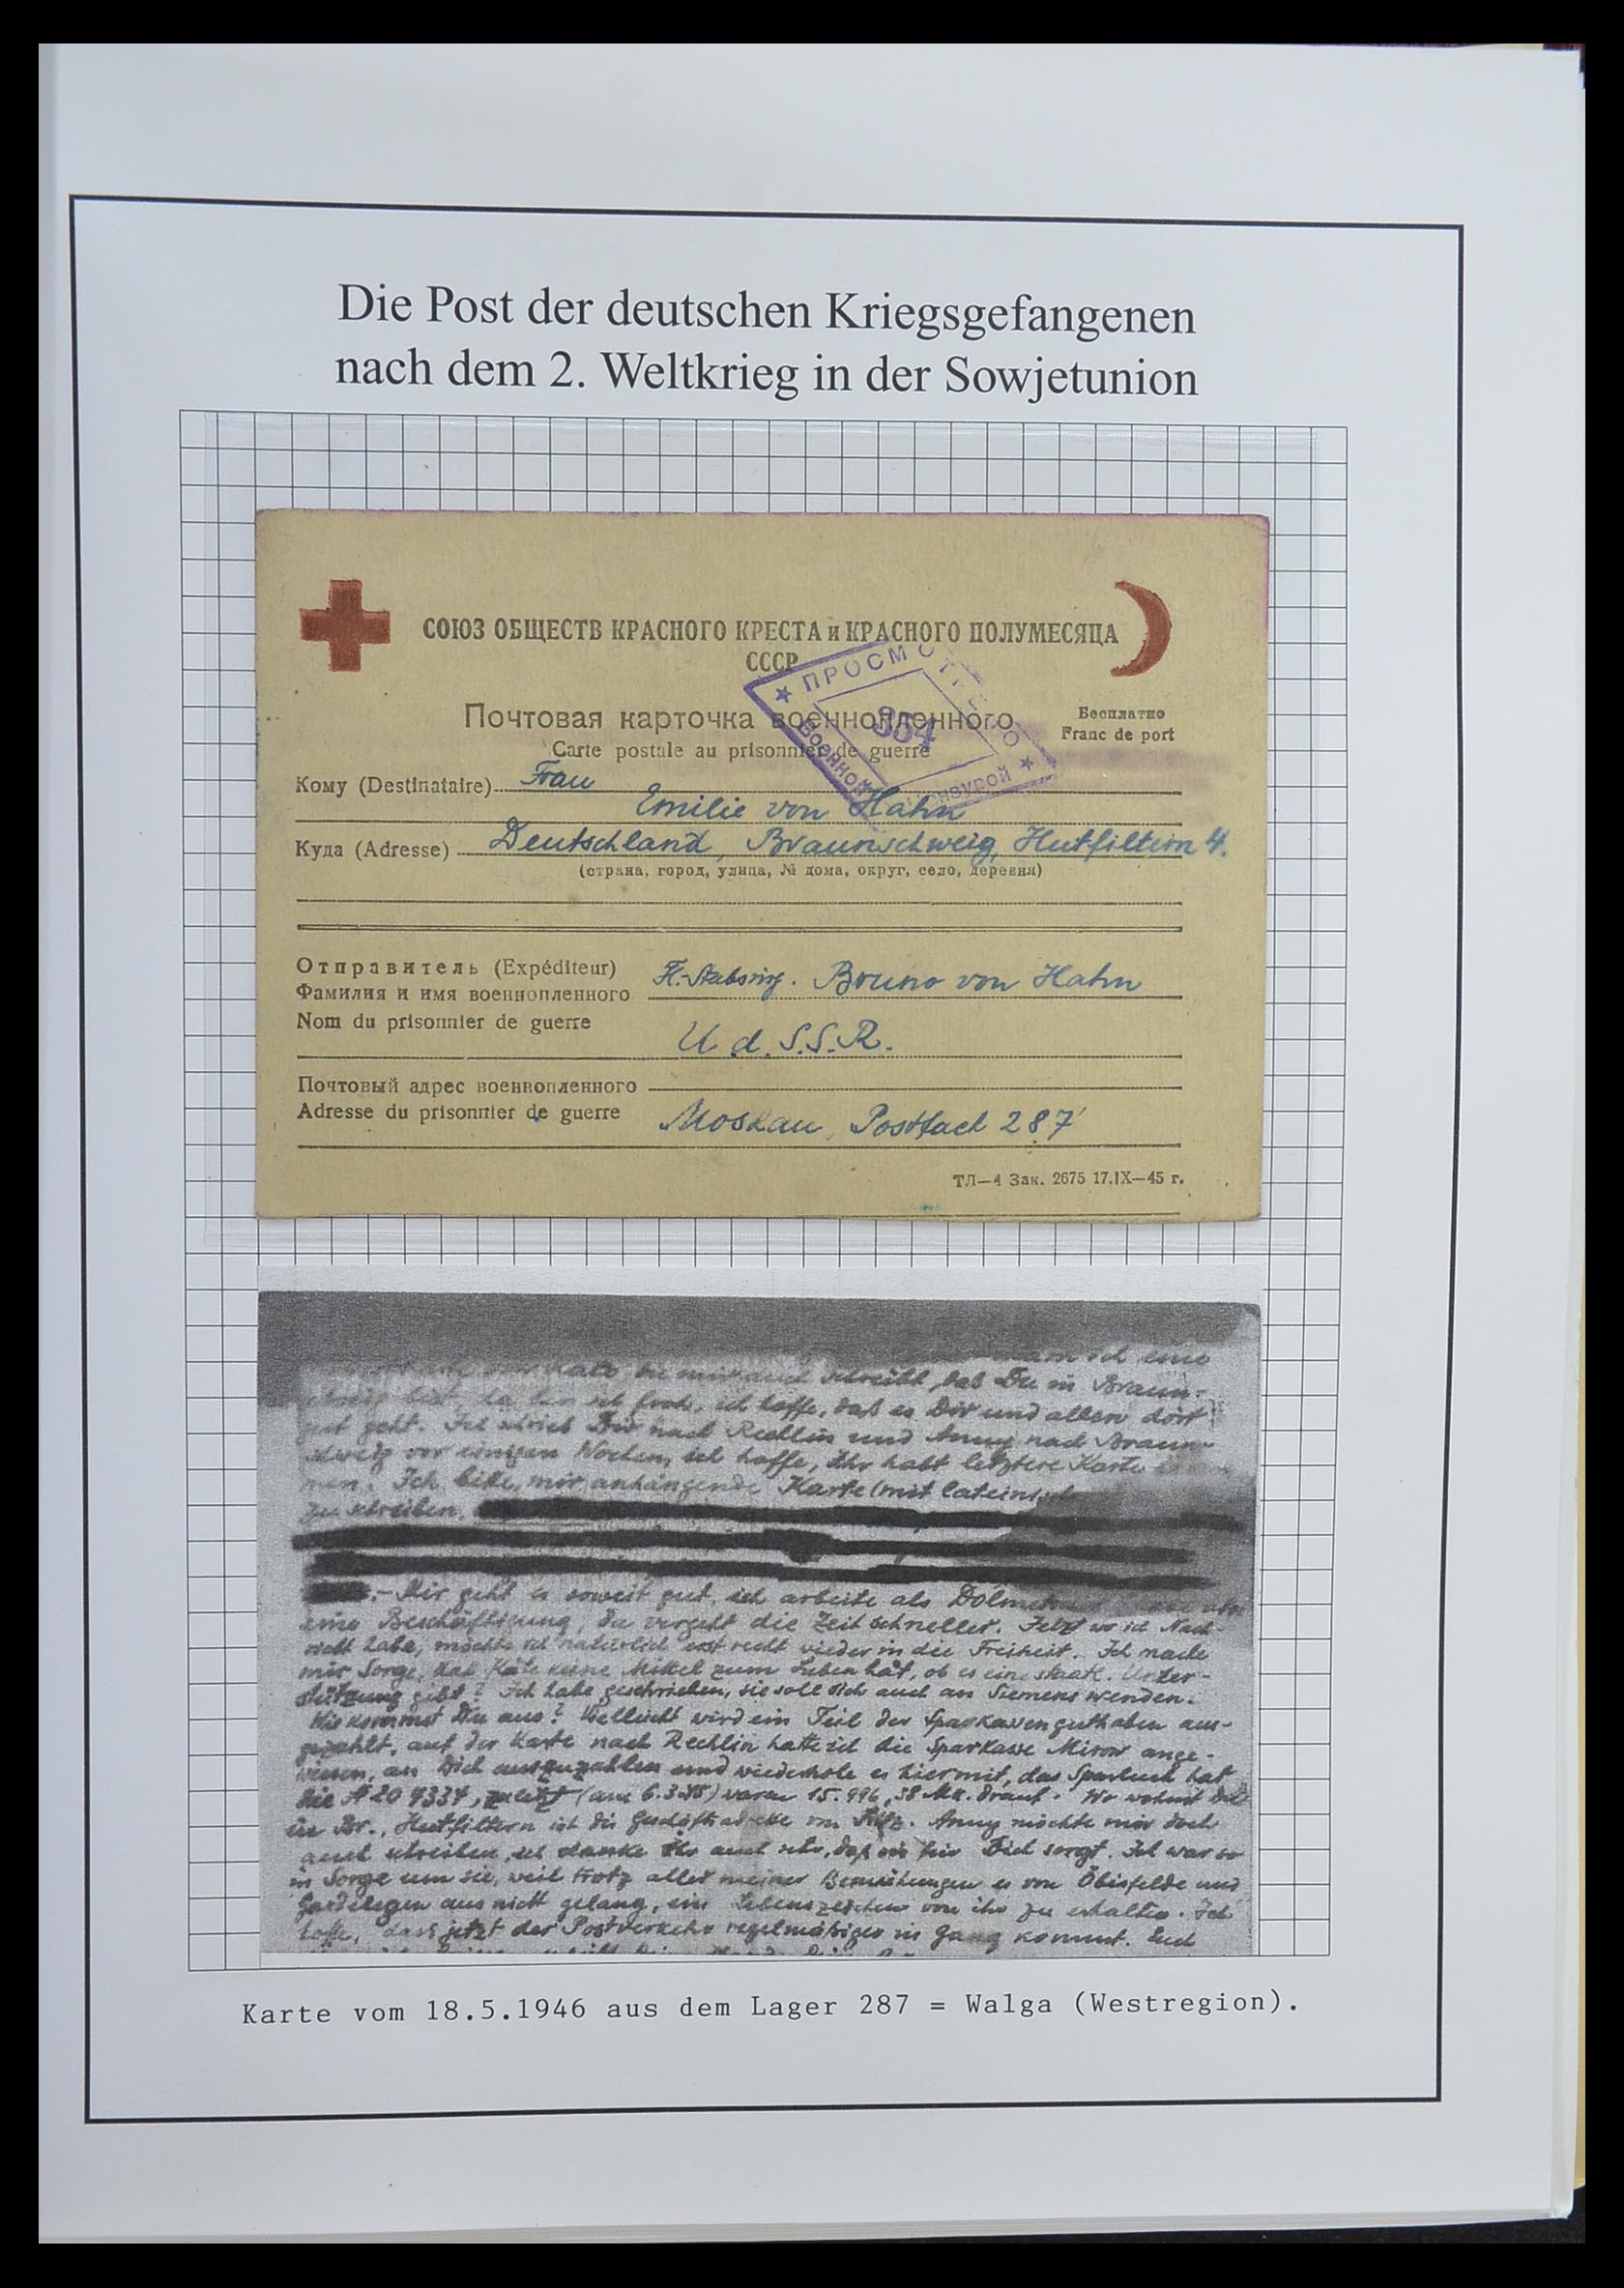 Die Post der deutschen Kriegsgefangenen
nach dem 2. Weltkrieg in der Sowjetunion
СОЮЗ ОБЩЕСТВ КРАСНОГО КРЕСТА и КРАСНОГО ПОЛУМЕСЯЦА
СССР
Почтовая карточка военнопленного
Бесплатно
Carte postale au prisonnier de guerre
Franc de port
★ ПРОСМОТРЕНО ★
Военной Цензурой
354
Кому (Destinataire) Frau
Emilie von Hahn
Куда (Adresse) Deutschland, Braunschweig, Hutfiltern 4.
(страна, город, улица, № дома, округ, село, деревня)
Отправитель (Expéditeur)
Фамилия и имя военнопленного Fl.-Stabsing. Bruno von Hahn
Nom du prisonnier de guerre
U d. S.S.R.
Почтовый адрес военнопленного
Adresse du prisonnier de guerre Moskau, Postfach 287
ТЛ—4 Зак. 2675 17.IX—45 г.
ich eine
mir auch schreibt, daß Du in Braun-
bist, da bin ich froh, ich hoffe, daß es Dir und allen dort
gut geht. Ich schrieb Dir nach Rechlin und Anny nach Braun-
schweig vor einigen Wochen, ich hoffe, Ihr habt letztere Karte
men. Ich bitte, mir anhängende Karte (mit
zu schreiben.
.- Mir geht es soweit gut, ich arbeite als
eine Beschäftigung, da vergeht die Zeit schneller. Jetzt wo ich Nach-
richt habe, möchte ich natürlich erst recht wieder in die Freiheit. Ich mache
mir Sorge, daß Käte keine Mittel zum Leben hat, ob es eine staatl. Unter-
stützung gibt? Ich habe geschrieben, sie soll sich auch an Siemens wenden.
Wie kommst Du aus? Vielleicht wird ein Teil der Sparkassenguthaben aus-
gezahlt, auf der Karte nach Rechlin hatte ich die Sparkasse Mirow ange-
wiesen, an Dich auszuzahlen und wiederhole es hiermit, das Sparbuch hat
die № 20 4334, zuletzt (am 6.3.45) waren 15.996,38 Mk. drauf. Wo wohnst Du
in Br., Hutfiltern ist die Geschäftsadresse von Fritz. Anny möchte mir doch
auch schreiben, ich danke ihr auch sehr, daß sie für Dich sorgt. Ich war so
in Sorge um sie, weil trotz aller meiner Bemühungen es von Öbisfelde und
Gardelegen aus nicht gelang, ein Lebenszeichen von ihr zu erhalten. Ich
hoffe, dass jetzt der Postverkehr regelmäßiger in Gang kommt. Euch
Karte vom 18.5.1946 aus dem Lager 287 = Walga (Westregion).